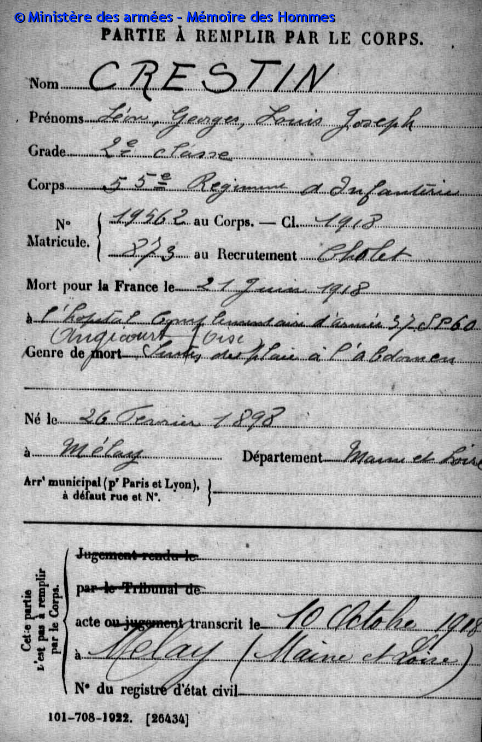 © Ministère des armées - Mémoire des Hommes
PARTIE À REMPLIR PAR LE CORPS.
Nom CRESTIN
Prénoms Léon, Georges, Louis Joseph
Grade 2e classe
Corps 55e Regiment d'Infanterie
No Matricule. { 19562 au Corps. — Cl. 1918
873 au Recrutement Cholet
Mort pour la France le 21 Juin 1918
à l'hopital Complementaire d'armée 37 SP60
Angicourt (Oise
Genre de mort Suites de plaie à l'abdomen
Né le 26 Fevrier 1898
à Mélay Département Maine et Loire
Arrt municipal (pr Paris et Lyon),
à défaut rue et No.
Cette partie n'est pas à remplir par le Corps.
Jugement rendu le
par le Tribunal de
acte ou jugement transcrit le 10 Octobre 1918
à Melay (Maine et Loire)
No du registre d'état civil
101-708-1922. [26434]